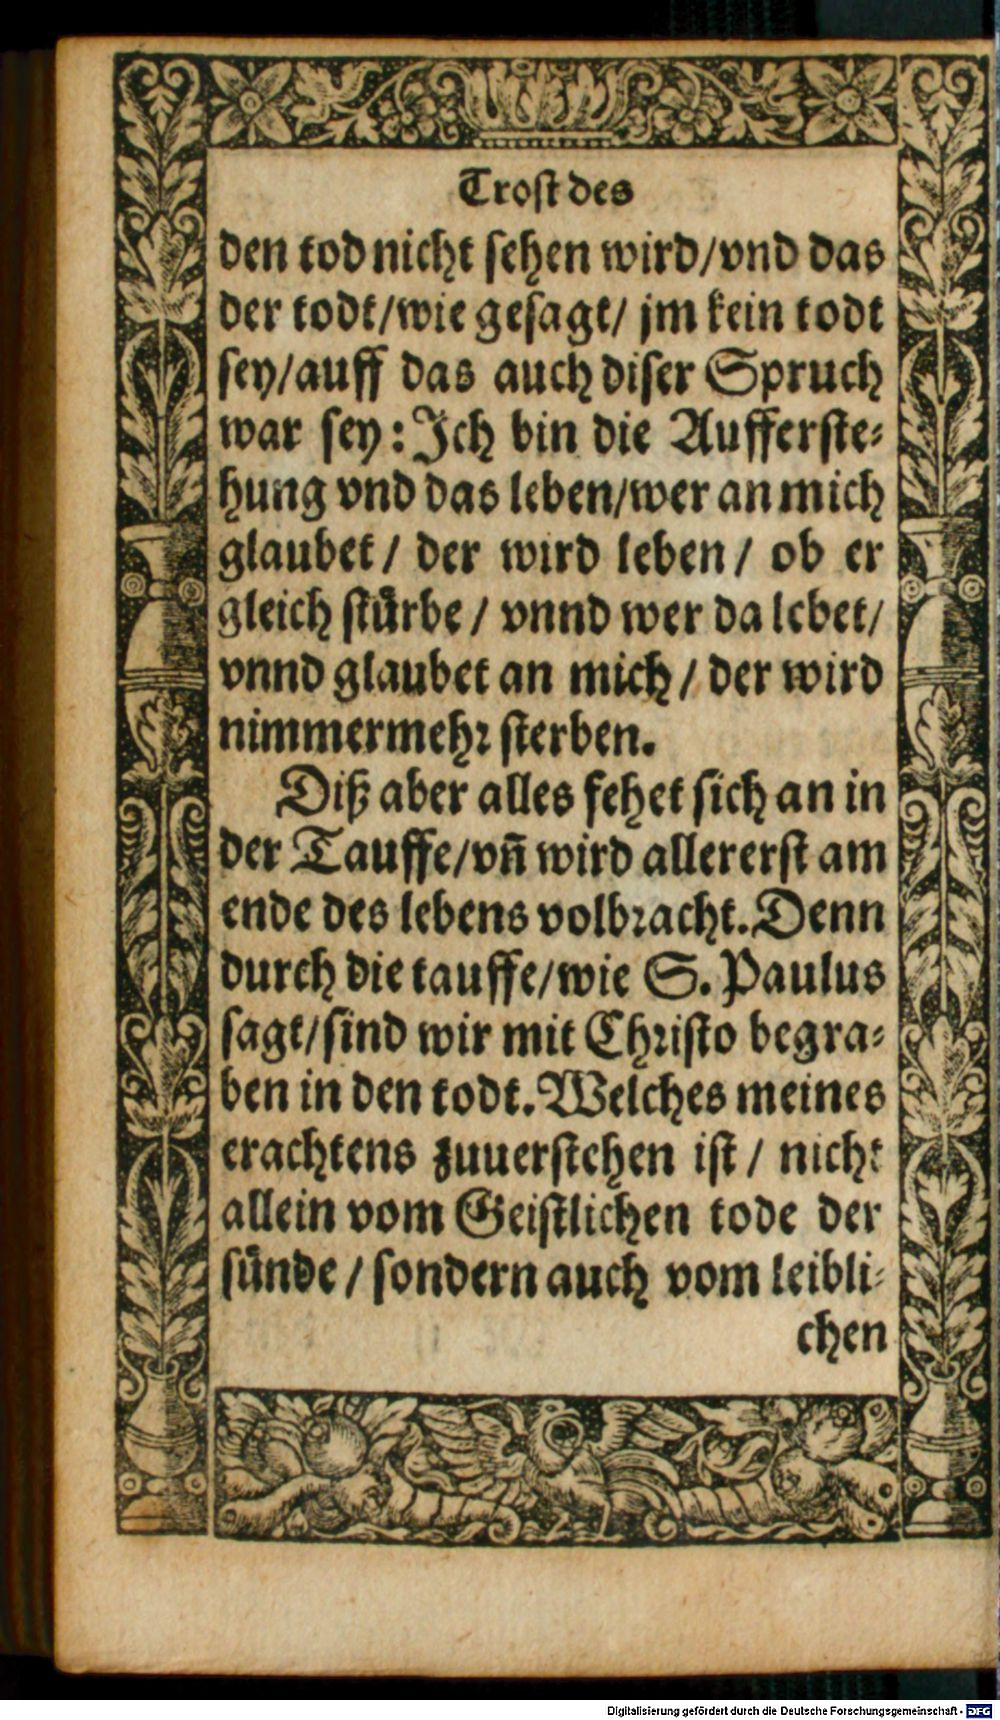 Trost des
den tod nicht sehen wird/vnd das
der todt/wie gesagt/ jm kein todt
sey/auff das auch diser Spruch
war sey: Ich bin die Aufferste-
hung vnd das leben/wer an mich
glaubet/ der wird leben/ ob er
gleich stürbe/ vnnd wer da lebet/
vnnd glaubet an mich/ der wird
nimmermehr sterben.
Diß aber alles fehet sich an in
der Tauffe/vñ wird allererst am
ende des lebens volbracht. Denn
durch die tauffe/wie S. Paulus
sagt/sind wir mit Christo begra-
ben in den todt. Welches meines
erachtens zuuerstehen ist/ nicht
allein vom Geistlichen tode der
sünde/ sondern auch vom leibli-
chen
Digitalisierung gefördert durch die Deutsche Forschungsgemeinschaft - DFG